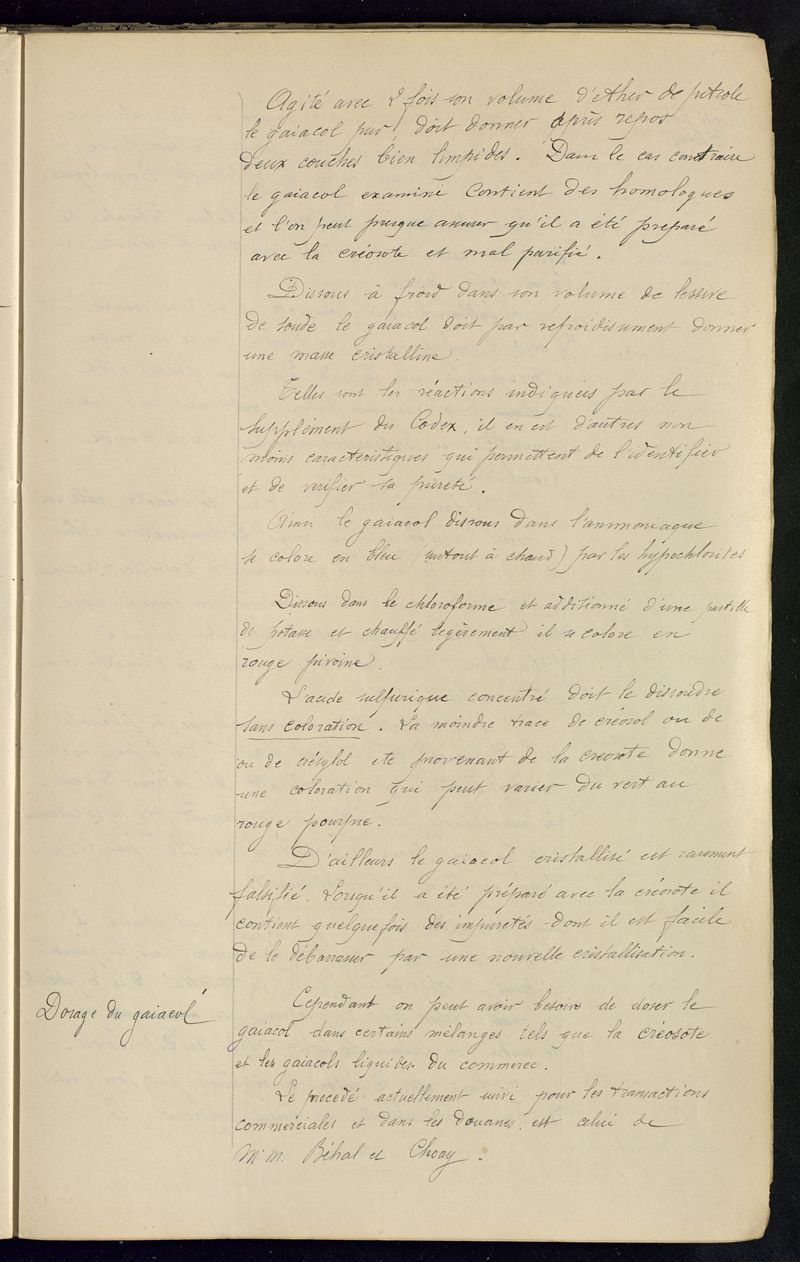 Agité avec 2 fois son volume d'ether de petrole
le gaiacol pur, doit donner après repos
deux couches bien limpides. Dans le cas contraire
le gaiacol examiné contient des homologues
et l'on peut presque assurer qu'il a été preparé
avec la créosote et mal purifié.
Dissous à froid dans son volume de lessive
de soude le gaiacol doit par refroidissement donner
une masse cristalline.
Telles sont les réactions indiquées par le
supplément du Codex, il en est d'autres non
moins caracteristiques qui permettent de l'identifier
et de verifier sa pureté.
Ainsi le gaiacol dissous dans l'ammoniaque
se colore en bleu (surtout à chaud) par les hypochlorites
Dissous dans le chloroforme et additionné d'une pastille
de potasse et chauffé legèrement il se colore en
rouge pivoine.
L'acide sulfurique concentré doit le dissoudre
sans coloration. La moindre trace de créosol ou de
ou de crésylol etc provenant de la creosote donne
une coloration qui peut varier du vert au
rouge pourpre.
D'ailleurs le gaiacol cristallisé est rarement
falsifié. Lorsqu'il a été préparé avec la créosote il
contient quelquefois des impuretés dont il est facile
de le débarrasser par une nouvelle cristallisation.
Dosage du gaiacol
Cependant on peut avoir besoin de doser le
gaiacol dans certains mélanges tels que la créosote
et les gaiacols liquides du commerce.
Le procedé actuellement suivi pour les transactions
commerciales et dans les douanes est celui de
M.M. Béhal et Choay.